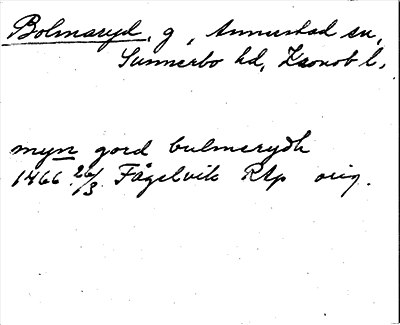 Bolmaryd, g, Annerstad sn,
Sunnerbo hd, Kronob l.
myn gord bulmerydh
1466 26/3 Fågelvik Rap orig.